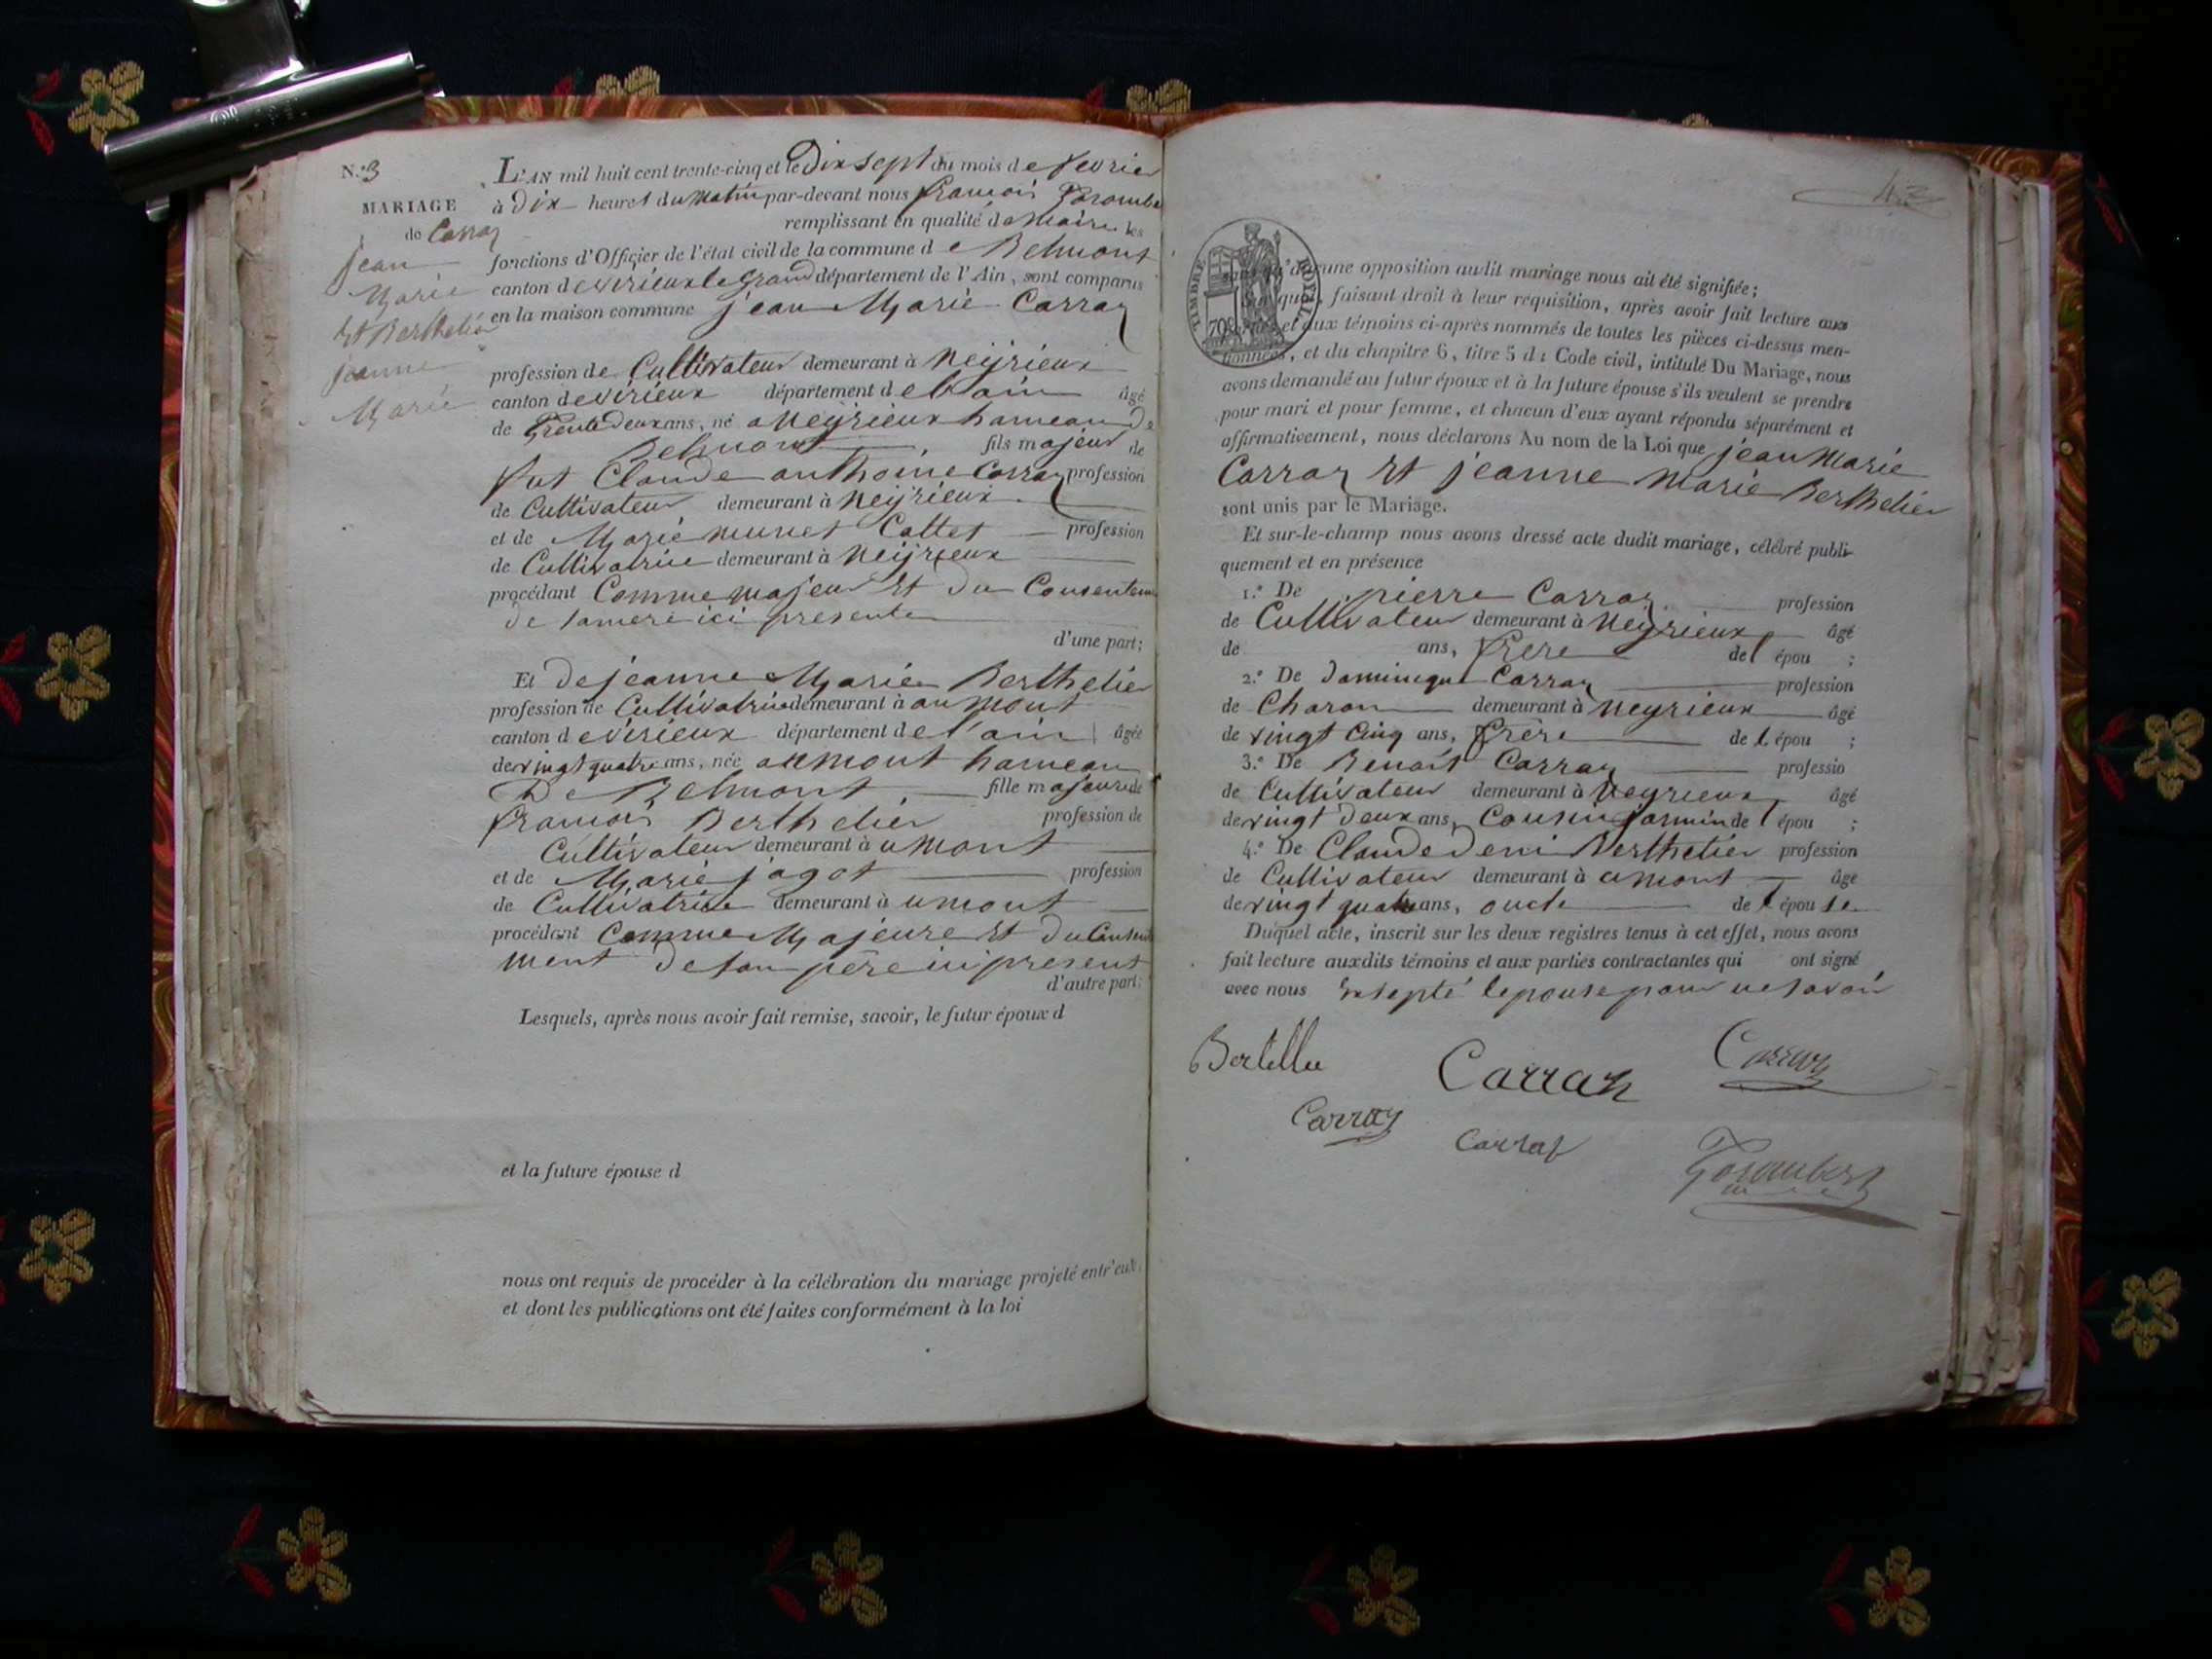 N.° 3
MARIAGE
de Carraz
jean
Marie
Et Berthelier
jeanne
Marie
L'AN mil huit cent trente-cinq et le Dix sept du mois de fevrier
à Dix heures du Matin par-devant nous françois
remplissant en qualité de Maire les
fonctions d'Officier de l'état civil de la commune de Belmont
canton de virieux le grand département de l'Ain, sont comparus
en la maison commune jean Marie Carraz
profession de Cultivateur demeurant à Neyrieux
canton de virieux département de l'ain âgé
de Trente deux ans, né a Neyrieux hameau de
Belmont, fils majeur de
fut Claude anthoine Carraz profession
de Cultivateur demeurant à Neyrieux
et de Marie Cattet profession
de Cultivatrice demeurant à Neyrieux
procédant Comme majeur Et du Consentem
de sa mere ici presente
d'une part;
Et De jeanne Marie Berthelier
profession de Cultivatrice demeurant à aumont
canton de virieux département de l'ain âgée
de vingt quatre ans, née a umont hameau
De Belmont, fille majeure de
francois Berthelier profession de
Cultivateur demeurant à umont
et de Marie jagot profession
de Cultivatrice demeurant à umont
procédant Comme Majeure Et du Consente
ment de son père ici present
d'autre part;
Lesquels, après nous avoir fait remise, savoir, le futur époux d
et la future épouse d
nous ont requis de procéder à la célébration du mariage projeté entr'eux,
et dont les publications ont été faites conformément à la loi
43
TIMBRE ROYAL
70c
d'aucune opposition audit mariage nous ait été signifiée;
faisant droit à leur requisition, après avoir fait lecture aux
et aux témoins ci-après nommés de toutes les pièces ci-dessus men-
tionnées, et du chapitre 6, titre 5 du Code civil, intitulé Du Mariage, nous
avons demandé au futur époux et à la future épouse s'ils veulent se prendre
pour mari et pour femme, et chacun d'eux ayant répondu séparément et
affirmativement, nous déclarons Au nom de la Loi que jean Marie
Carraz Et jeanne Marie Berthelier
sont unis par le Mariage.
Et sur-le-champ nous avons dressé acte dudit mariage, célébré publi-
quement et en présence
1.° De pierre Carraz profession
de Cultivateur demeurant à Neyrieux âgé
de ans, frere de l épou ;
2.° De Dominique Carraz profession
de Charon demeurant à Neyrieux âgé
de vingt Cinq ans, frère de l. épou ;
3.° De Benoit Carraz professio
de Cultivateur demeurant à Neyrieux âgé
de vingt Deux ans, Cousin jarmin de l épou ;
4.° De Claude Deni Berthelier profession
de Cultivateur demeurant à umont âge
de vingt quatre ans, oncle de l épou se
Duquel acte, inscrit sur les deux registres tenus à cet effet, nous avons
fait lecture auxdits témoins et aux parties contractantes qui ont signé
avec nous Exsepté lepouse pour ne savoir
Carraz
Carraz
Carraz
Carraz